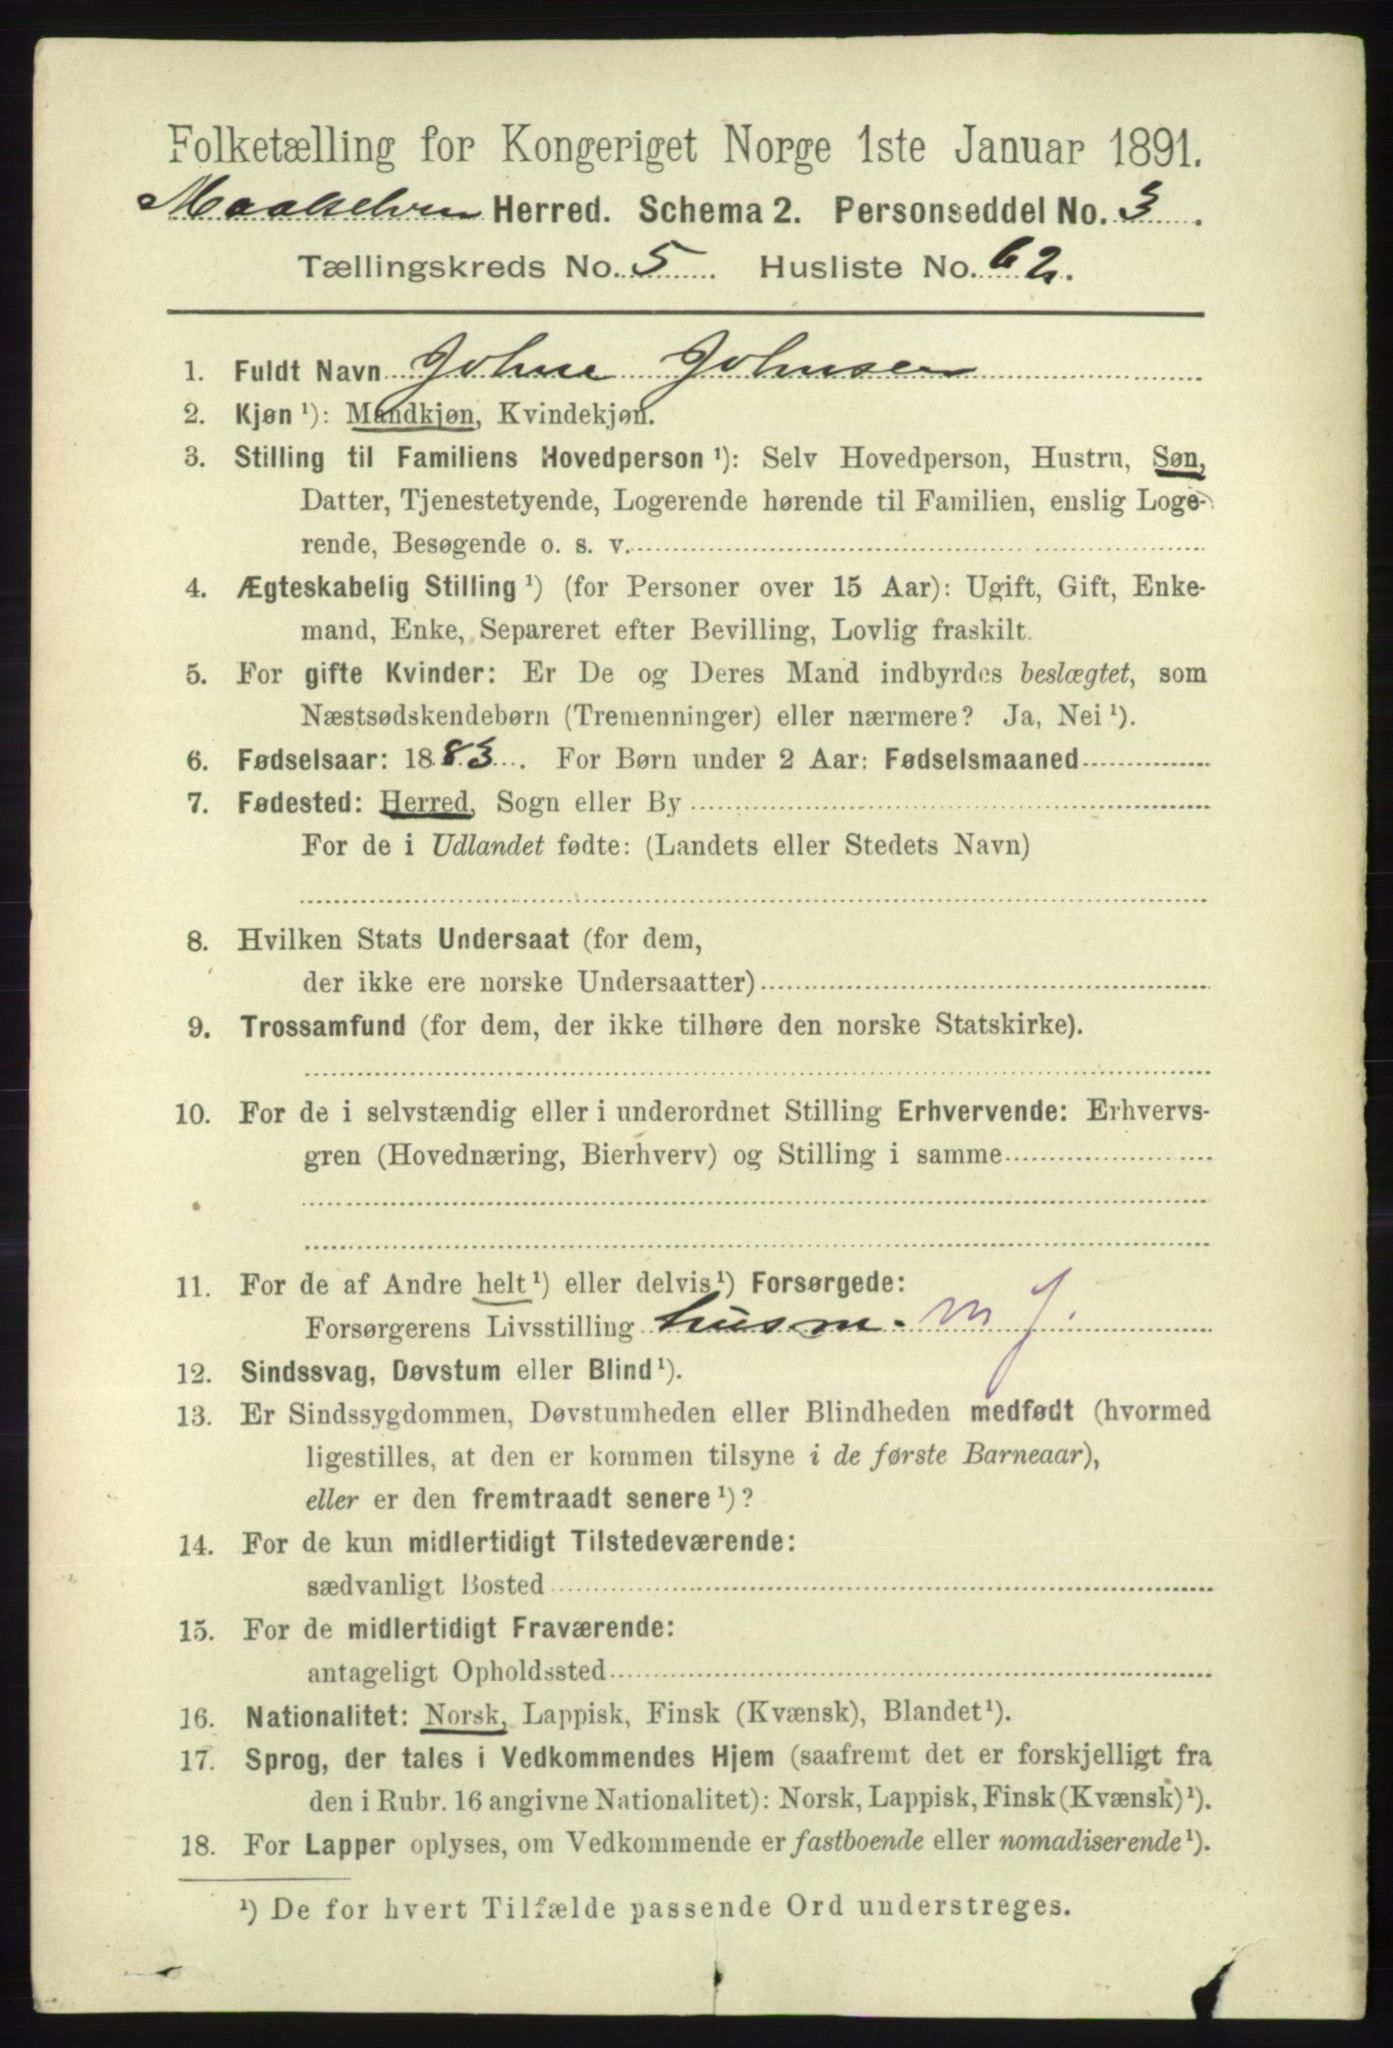 Folketælling for Kongeriget Norge 1ste Januar 1891.
Maalselven Herred. Schema 2. Personseddel No. 3.
Tællingskreds No. 5. Husliste No. 62.
1. Fuldt Navn Johne Johnsen
2. Kjøn ¹): Mandkjøn, Kvindekjøn.
3. Stilling til Familiens Hovedperson ¹): Selv Hovedperson, Hustru, Søn,
Datter, Tjenestetyende, Logerende hørende til Familien, enslig Loge-
rende, Besøgende o. s. v.
4. Ægteskabelig Stilling ¹) (for Personer over 15 Aar): Ugift, Gift, Enke-
mand, Enke, Separeret efter Bevilling, Lovlig fraskilt.
5. For gifte Kvinder: Er De og Deres Mand indbyrdes beslægtet, som
Næstsødskendebørn (Tremenninger) eller nærmere? Ja, Nei ¹).
6. Fødselsaar: 1883. For Børn under 2 Aar: Fødselsmaaned
7. Fødested: Herred, Sogn eller By
For de i Udlandet fødte: (Landets eller Stedets Navn)
8. Hvilken Stats Undersaat (for dem,
der ikke ere norske Undersaatter)
9. Trossamfund (for dem, der ikke tilhøre den norske Statskirke).
10. For de i selvstændig eller i underordnet Stilling Erhvervende: Erhvervs-
gren (Hovednæring, Bierhverv) og Stilling i samme
11. For de af Andre helt ¹) eller delvis ¹) Forsørgede:
Forsørgerens Livsstilling husm. m J.
12. Sindssvag, Døvstum eller Blind ¹).
13. Er Sindssygdommen, Døvstumheden eller Blindheden medfødt (hvormed
ligestilles, at den er kommen tilsyne i de første Barneaar),
eller er den fremtraadt senere ¹)?
14. For de kun midlertidigt Tilstedeværende:
sædvanligt Bosted
15. For de midlertidigt Fraværende:
antageligt Opholdssted
16. Nationalitet: Norsk, Lappisk, Finsk (Kvænsk), Blandet ¹).
17. Sprog, der tales i Vedkommendes Hjem (saafremt det er forskjelligt fra
den i Rubr. 16 angivne Nationalitet): Norsk, Lappisk, Finsk (Kvænsk) ¹).
18. For Lapper oplyses, om Vedkommende er fastboende eller nomadiserende ¹).
¹) De for hvert Tilfælde passende Ord understreges.